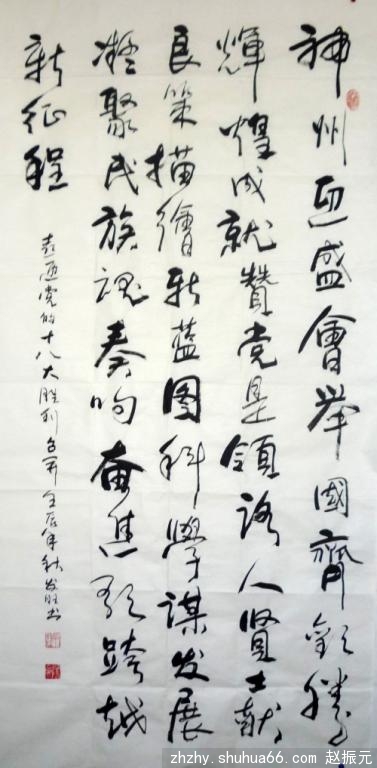 神州迎盛會举國齊歡腾
輝煌成就贊党是領路人賢士献
良策描繪新蓝图科學谋发展
凝聚民族魂奏响奋進歌跨越
新征程
喜迎党的十八大胜利召开 壬辰年秋发旺书
zhzhy.shuhua66.com 赵振元